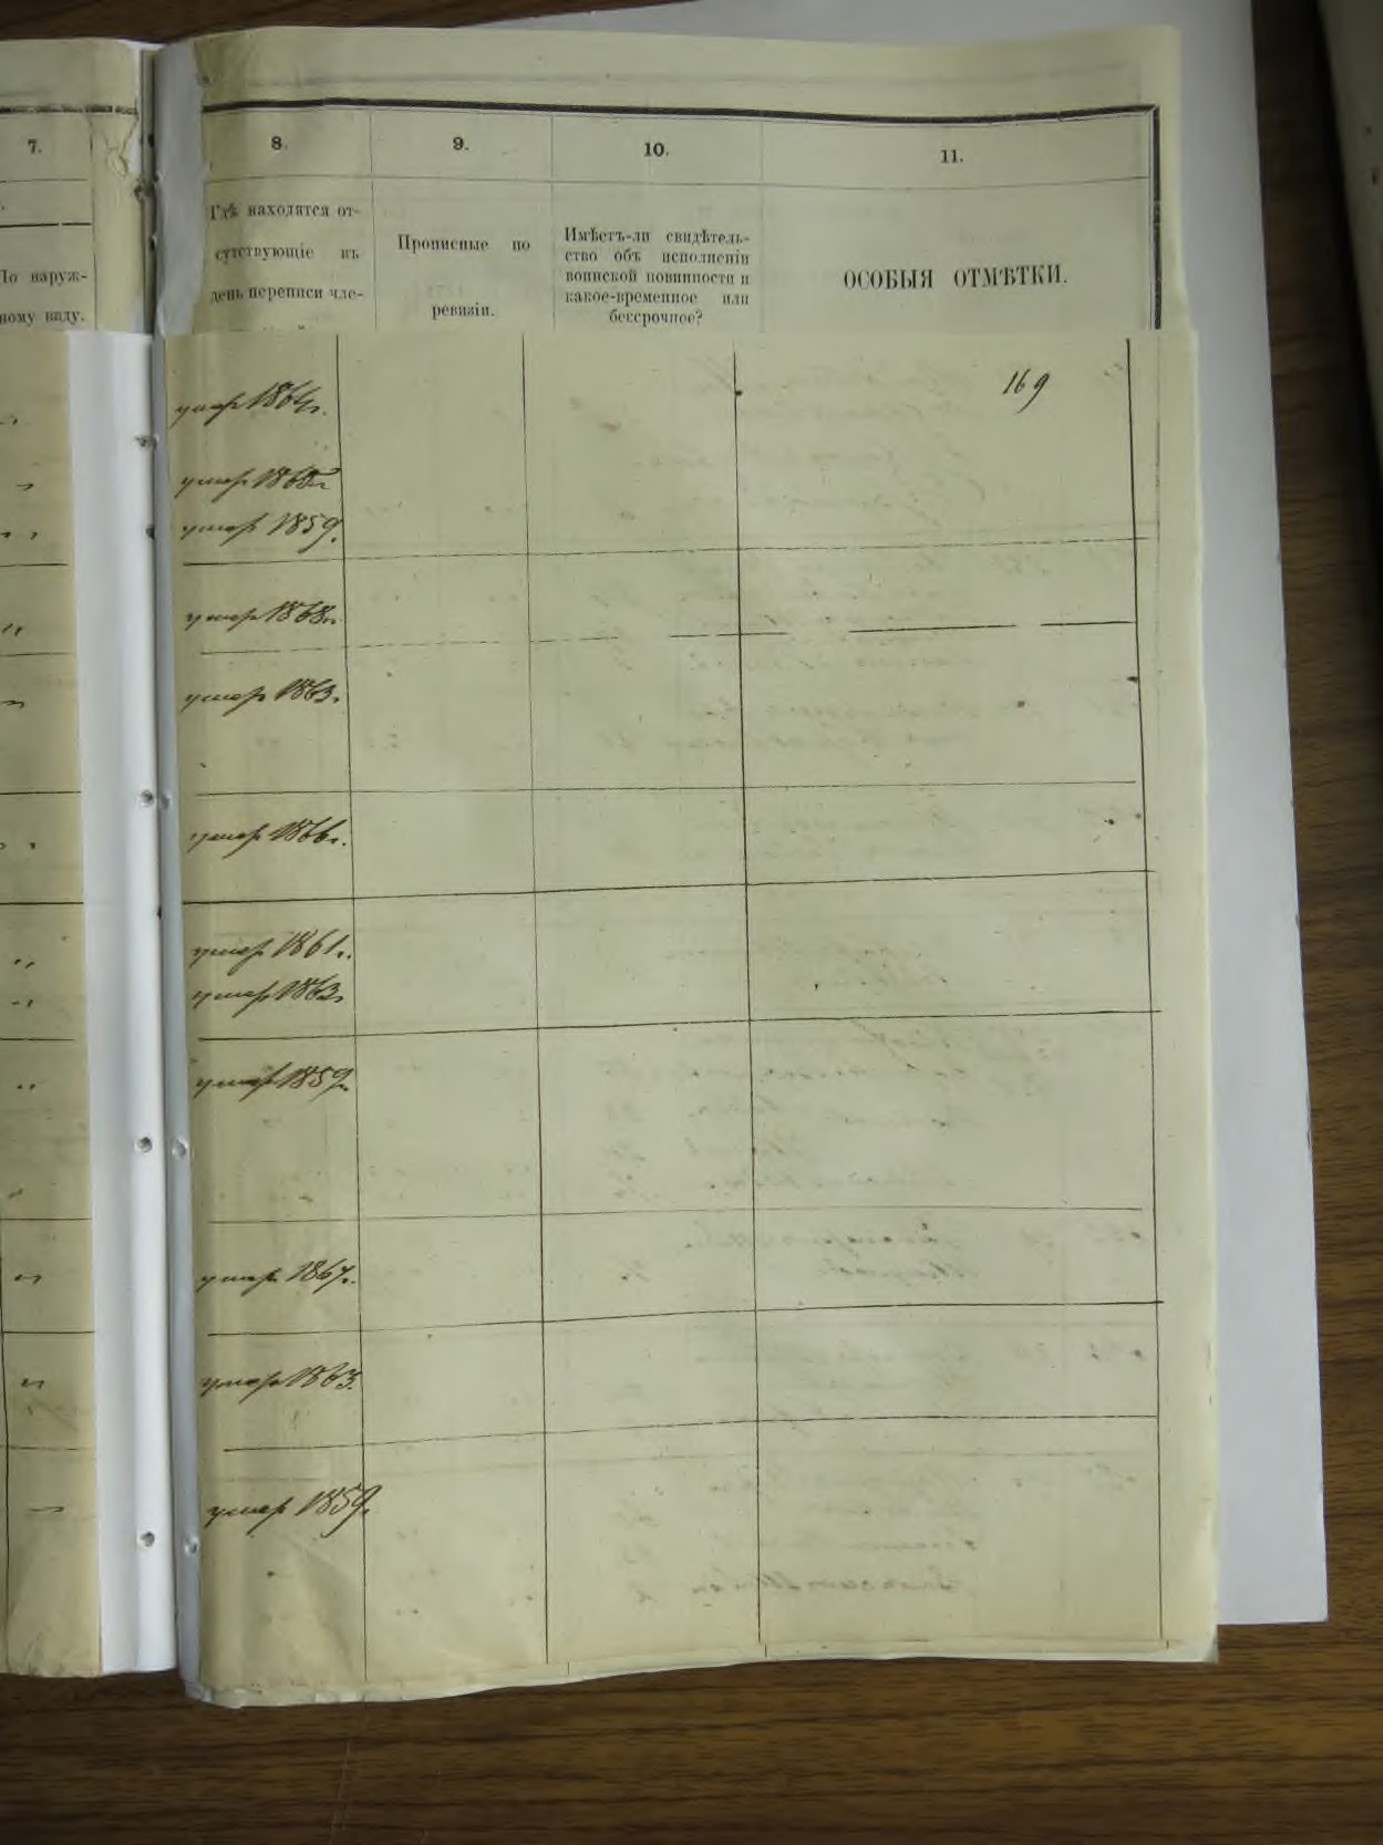 7.
8.
9.
10.
11.
По наруж-
ному виду.
Гдѣ находятся от-
сутствующіе въ
день переписи чле-
Прописные по
ревизіи.
Имѣетъ-ли свидѣтель-
ство объ исполненіи
воинской повинности и
какое-временное или
бессрочное?
ОСОБЫЯ ОТМѢТКИ.
169
умер 1864г.
умер 1865г
умер 1859.
умер 1868г.
умер 1863г.
умер 1866г.
умер 1861г.
умер 1863г
умер 1859г.
умер 1867г.
умер 1863.
умер 1859г.